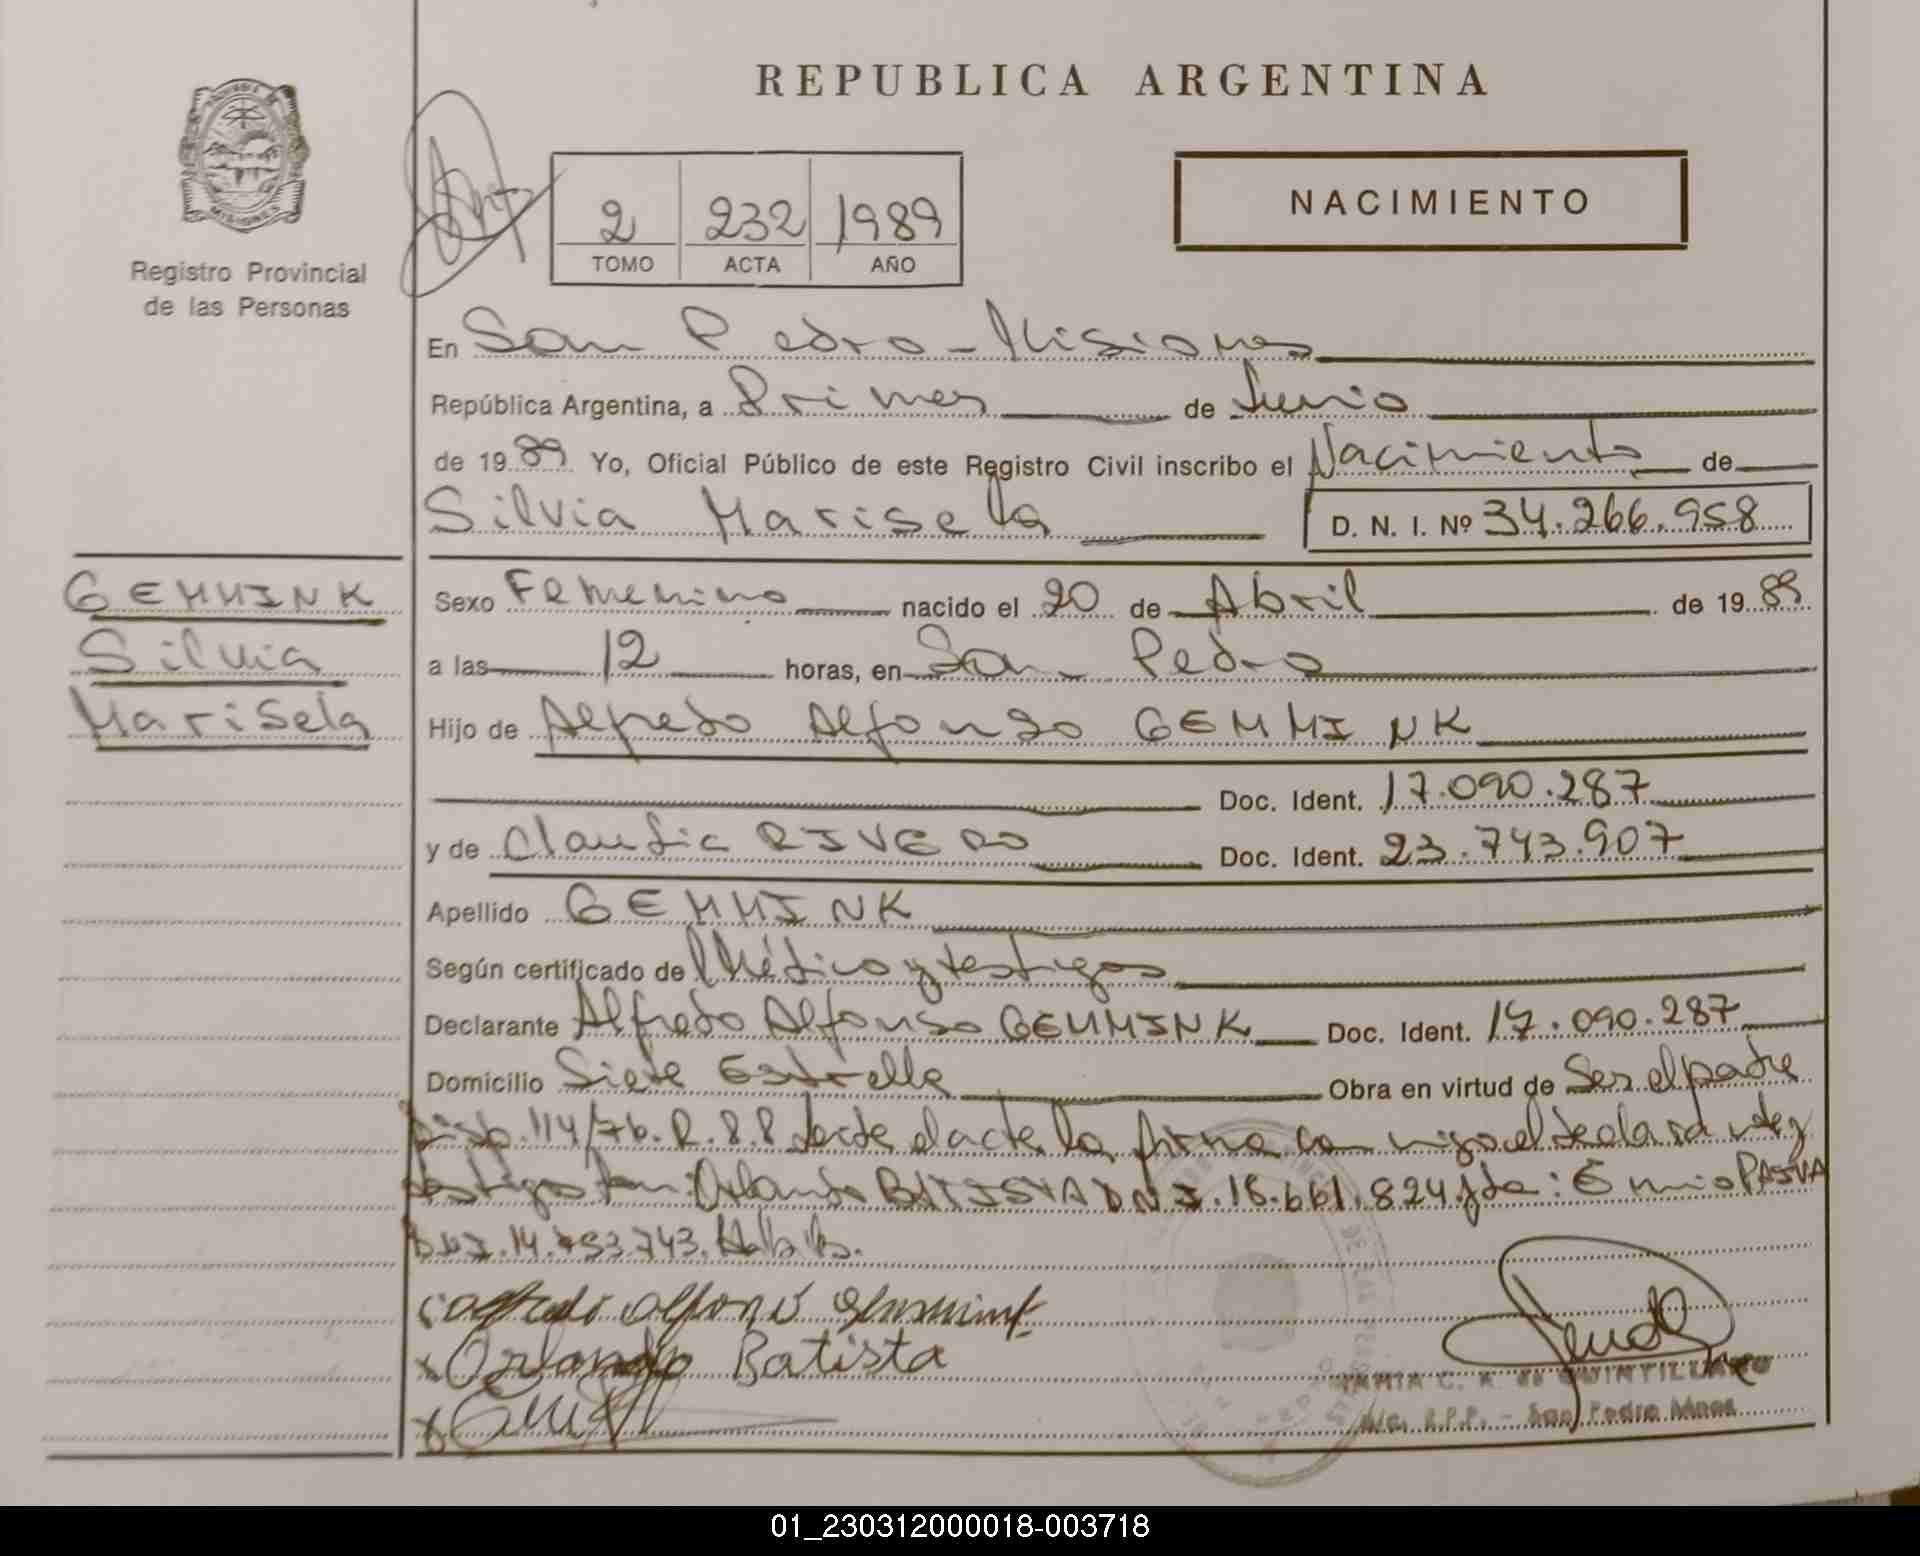 REPUBLICA ARGENTINA
PROVINCIA DE
MISIONES
Registro Provincial
de las Personas
2 232 1989
TOMO ACTA AÑO
NACIMIENTO
En San Pedro - Misiones
República Argentina, a Primer de Junio
de 1989 Yo, Oficial Público de este Registro Civil inscribo el Nacimiento de
Silvia Marisela D. N. I. Nº 34.266.958
GEMMINK
Silvia
Marisela
Sexo Femenino nacido el 20 de Abril de 1989
a las 12 horas, en San Pedro
Hijo de Alfredo Alfonso GEMMINK
Doc. Ident. 17.090.287
y de Claudia RIVERO Doc. Ident. 23.743.907
Apellido GEMMINK
Según certificado de Médico y testigos
Declarante Alfredo Alfonso GEMMINK Doc. Ident. 17.090.287
Domicilio Siete Estrella Obra en virtud de Ser el padre
Disp. 114/76. R.P.P. el acta la firma conmigo el
testigos Orlando BATISTA DNI. 16.661.824 y
DNI. 14. 743.
Alfredo Alfonso Gemmink
x Orlando Batista
x
C. A. de QUINTILLANO
R.P.P. - San Pedro Mnes
01_230312000018-003718